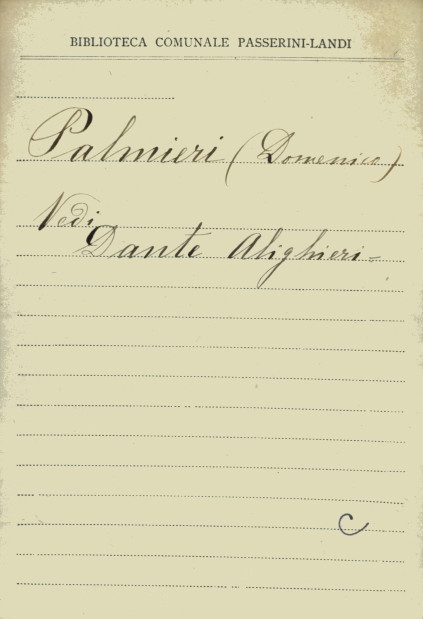 BIBLIOTECA COMUNALE PASSERINI-LANDI
Palmieri (Domenico)
Vedi
Dante Alighieri-
C